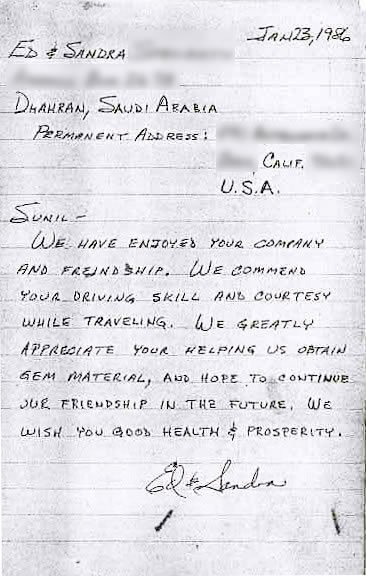 JAN 23, 1986
ED & SANDRA
DHAHRAN, SAUDI ARABIA
PERMANENT ADDRESS:
, CALIF.
U.S.A.
SUNIL –
WE HAVE ENJOYED YOUR COMPANY
AND FREINDSHIP. WE COMMEND
YOUR DRIVING SKILL AND COURTESY
WHILE TRAVELING. WE GREATLY
APPRECIATE YOUR HELPING US OBTAIN
GEM MATERIAL, AND HOPE TO CONTINUE
OUR FRIENDSHIP IN THE FUTURE. WE
WISH YOU GOOD HEALTH & PROSPERITY.
Ed & Sandra